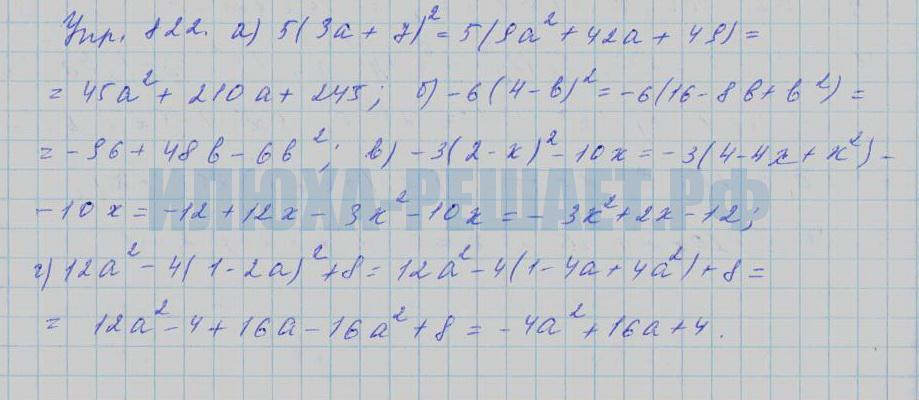 Упр. 822. а) 5(3a + 7)² = 5(9a² + 42a + 49) =
= 45a² + 210a + 245; б) -6(4 - b)² = -6(16 - 8b + b²) =
= -96 + 48b - 6b²; в) -3(2 - x)² - 10x = -3(4 - 4x + x²) -
ИЛЮХА-РЕШАЕТ.РФ
- 10x = -12 + 12x - 3x² - 10x = -3x² + 2x - 12;
г) 12a² - 4(1 - 2a)² + 8 = 12a² - 4(1 - 4a + 4a²) + 8 =
= 12a² - 4 + 16a - 16a² + 8 = -4a² + 16a + 4.